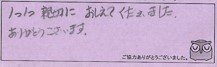 1つ1つ 親切に おしえてくださいました。
ありがとうございます。
ご協力ありがとうございました。